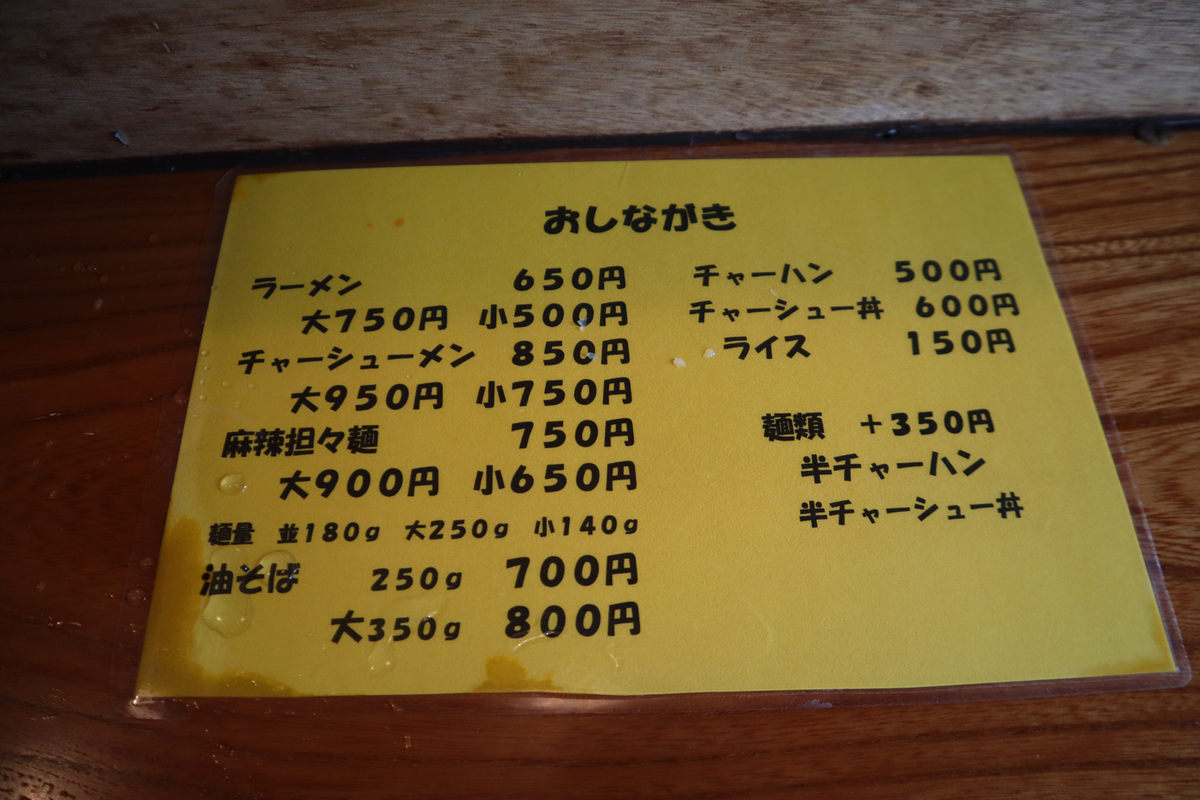 おしながき
ラーメン 650円
大750円 小500円
チャーシューメン 850円
大950円 小750円
麻辣担々麺 750円
大900円 小650円
麺量 並180g 大250g 小140g
油そば 250g 700円
大350g 800円
チャーハン 500円
チャーシュー丼 600円
ライス 150円
麺類 +350円
半チャーハン
半チャーシュー丼